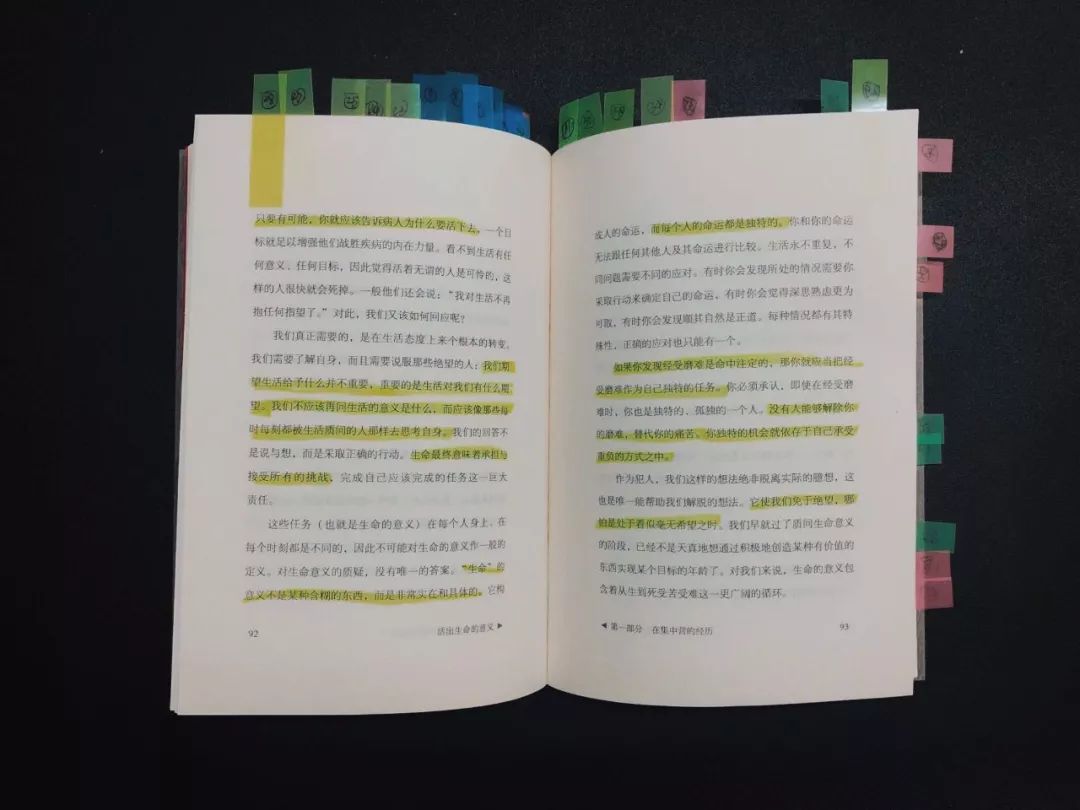 只要有可能,你就应该告诉病人为什么要活下去,一个目
标就足以增强他们战胜疾病的内在力量。看不到生活有任
何意义、任何目标,因此觉得活着无谓的人是可怜的,这
样的人很快就会死掉。一般他们还会说:“我对生活不再
抱任何指望了。”对此,我们又该如何回应呢?
我们真正需要的,是在生活态度上来个根本的转变。
我们需要了解自身,而且需要说服那些绝望的人:我们期
望生活给予什么并不重要,重要的是生活对我们有什么期
望。我们不应该再问生活的意义是什么,而应该像那些每
时每刻都被生活质问的人那样去思考自身。我们的回答不
是说与想,而是采取正确的行动。生命最终意味着承担与
接受所有的挑战,完成自己应该完成的任务这一巨大
责任。
这些任务(也就是生命的意义)在每个人身上、在
每个时刻都是不同的,因此不可能对生命的意义作一般的
定义。对生命意义的质疑,没有唯一的答案。“生命”的
意义不是某种含糊的东西,而是非常实在和具体的。它构
92
活出生命的意义
成人的命运,而每个人的命运都是独特的。你和你的命运
无法跟任何其他人及其命运进行比较。生活永不重复,不
同问题需要不同的应对。有时你会发现所处的情况需要你
采取行动来确定自己的命运,有时你会觉得深思熟虑更为
可取,有时你会发现顺其自然是正道。每种情况都有其特
殊性,正确的应对也只能有一个。
如果你发现经受磨难是命中注定的,那你就应当把经
受磨难作为自己独特的任务。你必须承认,即使在经受磨
难时,你也是独特的、孤独的一个人。没有人能够解除你
的磨难,替代你的痛苦。你独特的机会就依存于自己承受
重负的方式之中。
作为犯人,我们这样的想法绝非脱离实际的臆想,这
也是唯一能帮助我们解脱的想法。它使我们免于绝望,哪
怕是处于看似毫无希望之时。我们早就过了质问生命意义
的阶段,已经不是天真地想通过积极地创造某种有价值的
东西实现某个目标的年龄了。对我们来说,生命的意义包
含着从生到死受苦受难这一更广阔的循环。
第一部分 在集中营的经历
93